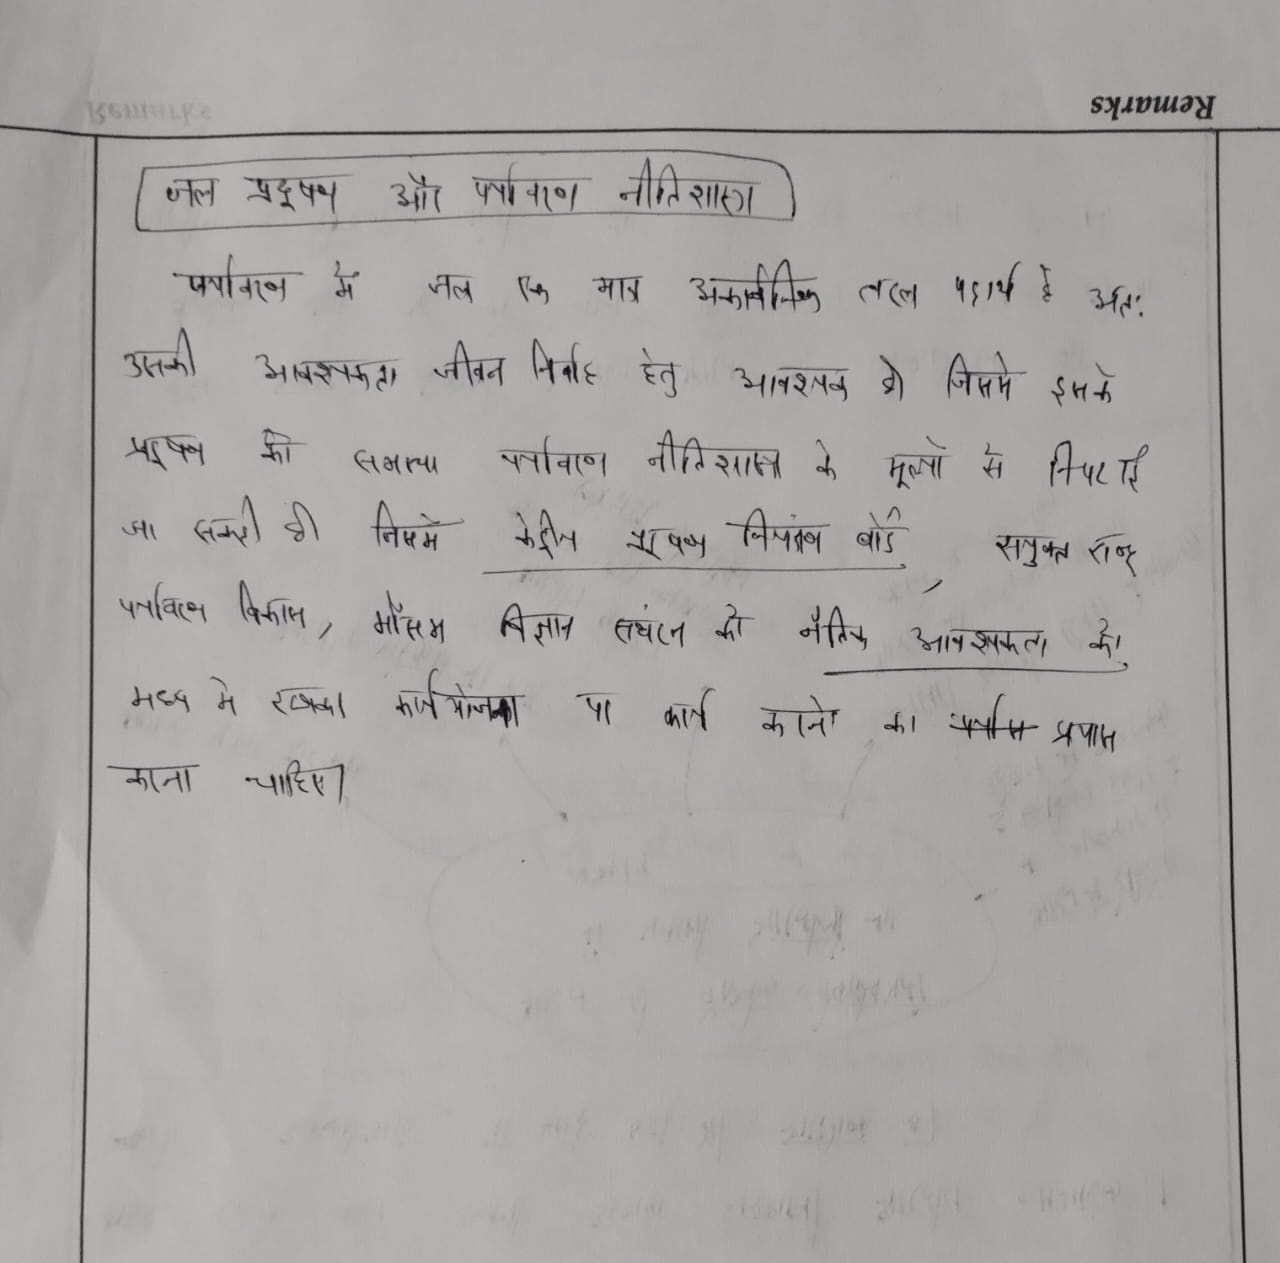 Remarks
जल प्रदूषण और पर्यावरण नीतिशास्त्र
पर्यावरण में जल एक मात्र अकार्बनिक तरल पदार्थ है अतः
उसकी आवश्यकता जीवन निर्वाह हेतु आवश्यक है जिसमे इसके
प्रदूषण की समस्या पर्यावरण नीतिशास्त्र के मूल्यों से निपटाई
जा सकती है जिसमें केंद्रीय प्रदूषण नियंत्रण बोर्ड, सयुक्त राष्ट्र
पर्यावरण विकास, मौसम विज्ञान सगंठन को नैतिक आवश्यकता को
मध्य मे रखकर कार्ययोजना पर कार्य करने का प्रयास
करना चाहिए।